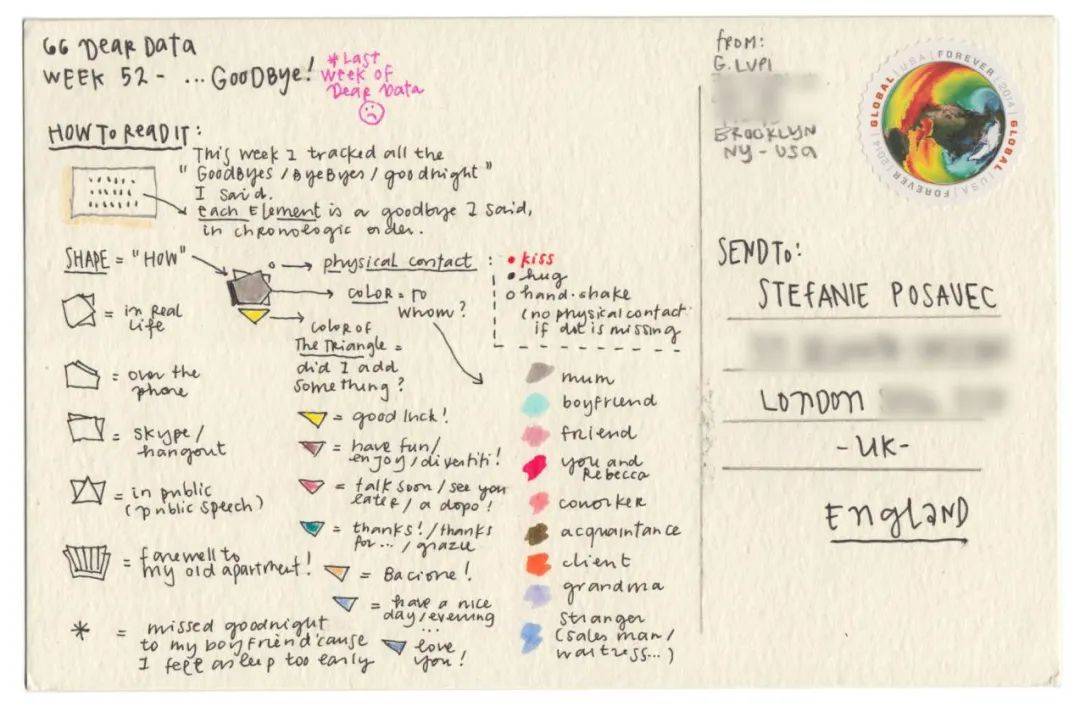 GG Dear Data
WEEK 52 - ... GOODBYE!
* Last
week of
Dear Data
HOW TO READ IT:
This week I tracked all the
"Goodbyes / ByeByes / goodnight"
I said.
each Element is a goodbye I said,
in chronologic order.
SHAPE = "HOW"
= in real
life
= over the
phone
= skype /
hangout
= in public
(public speech)
= farewell to
my old apartment!
* = missed goodnight
to my boyfriend 'cause
I fell asleep too early
physical contact :
• kiss
• hug
o hand-shake
(no physical contact
if dot is missing
COLOR = TO
WHOM?
COLOR of
The Triangle =
did I add
something?
= good luck!
= have fun/
enjoy/divertiti!
= talk soon / see you
later / a dopo!
= thanks! / thanks
for ... / grazie
= Bacione!
= have a nice
day/evening
...
= love
you!
mum
boyfriend
friend
you and
Rebecca
coworker
acquaintance
client
grandma
stranger
(sales man /
waitress...)
FROM:
G. LUPI
BROOKLYN
NY - USA
GLOBAL | USA | FOREVER | 2014 | GLOBAL | USA | FOREVER | 2014
SEND TO:
STEFANIE POSAVEC
LONDON
- UK -
ENGLAND